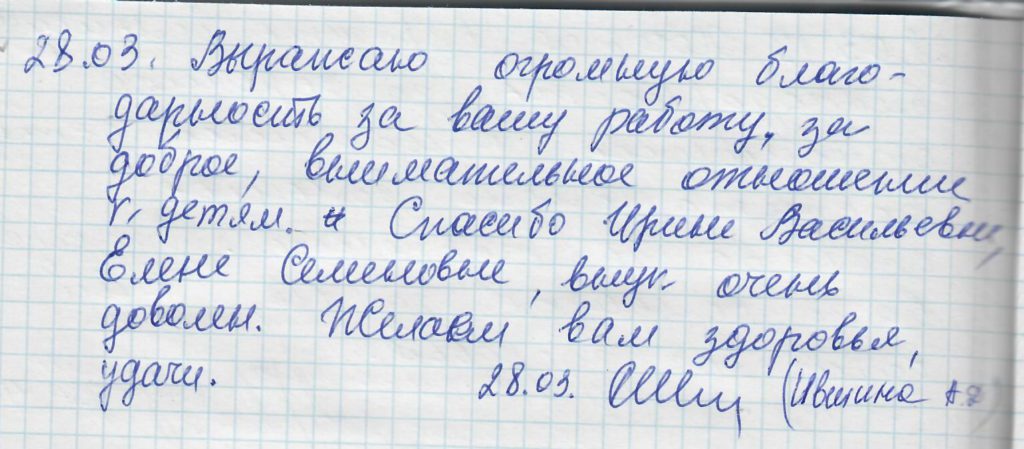 28.03. Выражаю огромную благо-
дарность за вашу работу, за
доброе, внимательное отношение
к детям. Спасибо Ирине Васильевне,
Елене Семеновне, внук очень
доволен. Желаем вам здоровья,
удачи. 28.03. (Ившина А.